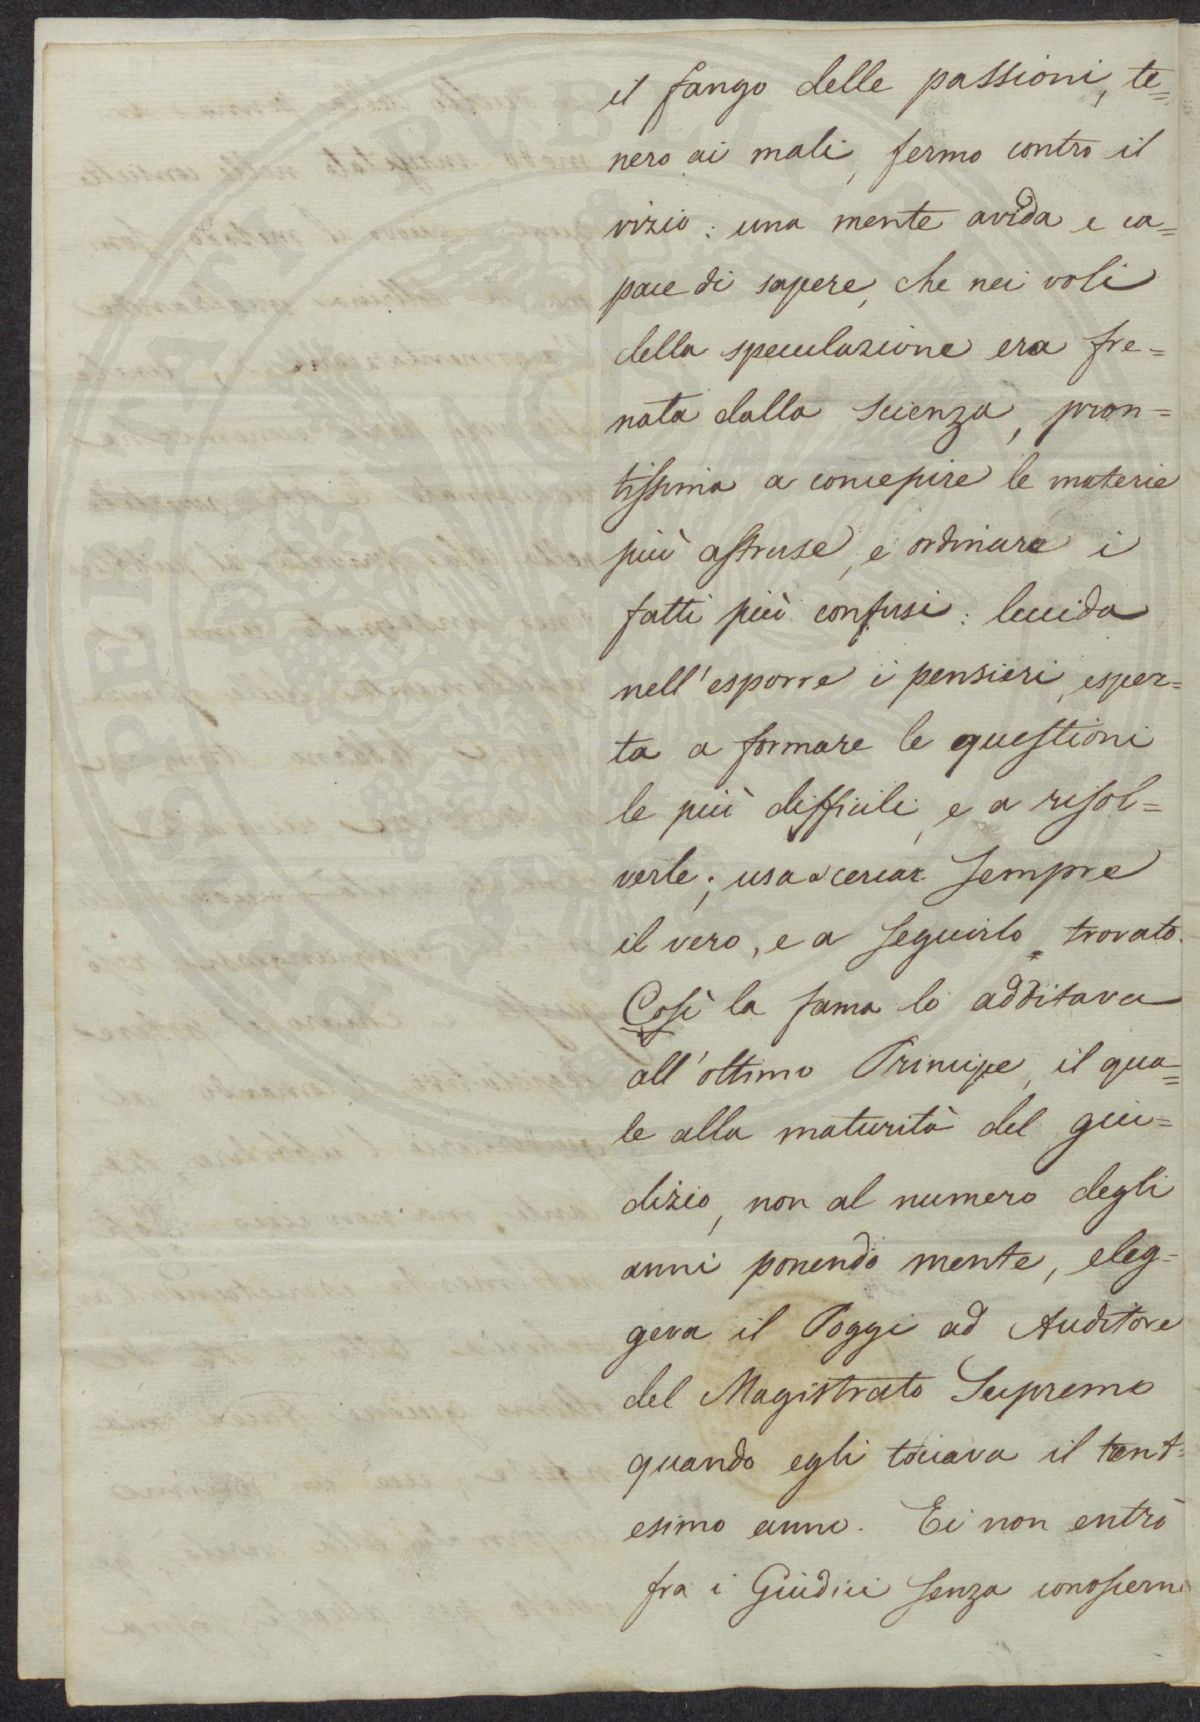 il fango delle passioni, te=
nero ai mali, fermo contro il
vizio: una mente avida e ca=
pace di sapere, che nei voli
della speculazione era fre=
nata dalla scienza, pron=
tissima a concepire le materie
più astruse, e ordinare i
fatti più confusi: lucida
nell'esporre i pensieri, esper=
ta a formare le questioni
le più difficili, e a risol=
verle; usa a cercar sempre
il vero, e a seguirlo trovato.
Così la fama lo additava
all'ottimo Principe, il qua=
le alla maturità del giu=
dizio, non al numero degli
anni ponendo mente, eleg=
geva il Poggi ad Auditore
del Magistrato Supremo
quando egli toccava il trent=
esimo anno. Ei non entrò
fra i Giudici senza conoscerne